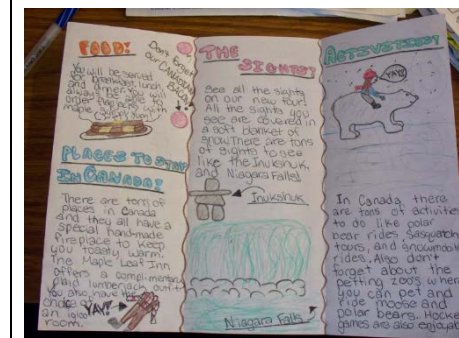 FOOD!
Don't forget
our CANADIAN
BACON!
You will be served
for breakfast, lunch,
and dinner. You will
always be able to
order flapjacks with
maple syrup.
PLACES TO STAY
IN CANADA!
There are tons of
places in Canada
and they all have a
special hand-made
fireplace to keep
you toasty warm.
The Maple Leaf Inn
offers a complimentary
plaid lumberjack outfit.
You also have the
choice of
an igloo
room.
YAY!
THE
SIGHTS!
See all the sights
on our new tour!
All the sights you
see are covered in
a soft blanket of
snow. There are tons
of sights to see
like the Inukshuk,
and Niagara Falls!
Inukshuk
Niagara Falls
ACTIVITIES!
YAY!
In Canada, there
are tons of activites
to do like polar
bear rides, Sasquatch
tours, and snowmobile
rides. Also don't
forget about the
petting zoo's where
you can pet and
ride moose and
polar bears. Hockey
games are also enjoyable